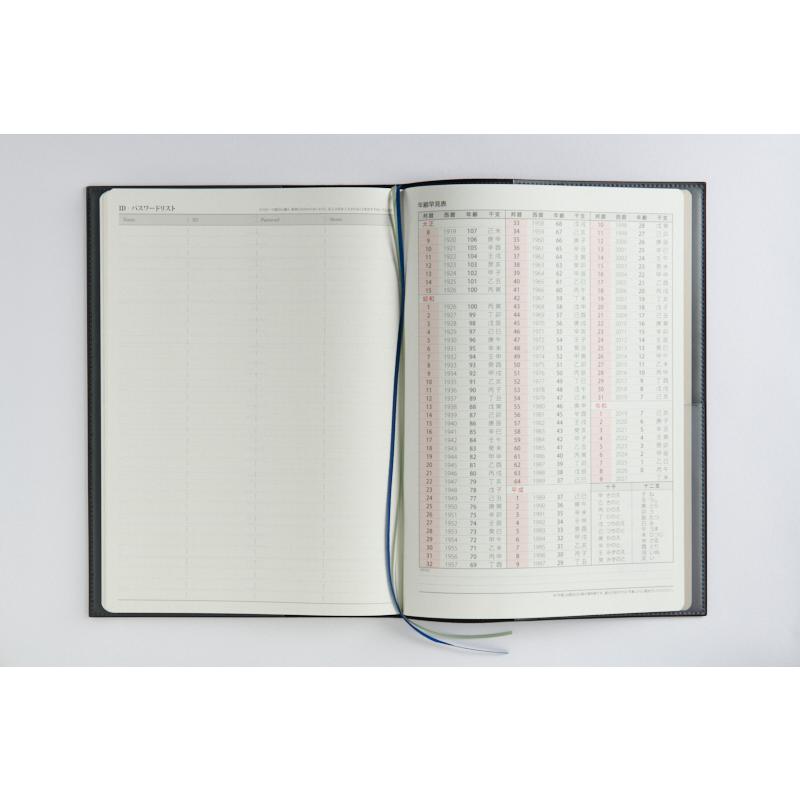 ID・パスワードリスト
Name ID Password Memo
年齢早見表
邦暦 西暦 年齢 干支
大正
8 1919 107 己未
9 1920 106 庚申
10 1921 105 辛酉
11 1922 104 壬戌
12 1923 103 癸亥
13 1924 102 甲子
14 1925 101 乙丑
15 1926 100 丙寅
昭和
1 1926 100 丙寅
2 1927 99 丁卯
3 1928 98 戊辰
4 1929 97 己巳
5 1930 96 庚午
6 1931 95 辛未
7 1932 94 壬申
8 1933 93 癸酉
9 1934 92 甲戌
10 1935 91 乙亥
11 1936 90 丙子
12 1937 89 丁丑
13 1938 88 戊寅
14 1939 87 己卯
15 1940 86 庚辰
16 1941 85 辛巳
17 1942 84 壬午
18 1943 83 癸未
19 1944 82 甲申
20 1945 81 乙酉
21 1946 80 丙戌
22 1947 79 丁亥
23 1948 78 戊子
24 1949 77 己丑
25 1950 76 庚寅
26 1951 75 辛卯
27 1952 74 壬辰
28 1953 73 癸巳
29 1954 72 甲午
30 1955 71 乙未
31 1956 70 丙申
32 1957 69 丁酉
邦暦 西暦 年齢 干支
33 1958 68 戊戌
34 1959 67 己亥
35 1960 66 庚子
36 1961 65 辛丑
37 1962 64 壬寅
38 1963 63 癸卯
39 1964 62 甲辰
40 1965 61 乙巳
41 1966 60 丙午
42 1967 59 丁未
43 1968 58 戊申
44 1969 57 己酉
45 1970 56 庚戌
46 1971 55 辛亥
47 1972 54 壬子
48 1973 53 癸丑
49 1974 52 甲寅
50 1975 51 乙卯
51 1976 50 丙辰
52 1977 49 丁巳
53 1978 48 戊午
54 1979 47 己未
55 1980 46 庚申
56 1981 45 辛酉
57 1982 44 壬戌
58 1983 43 癸亥
59 1984 42 甲子
60 1985 41 乙丑
61 1986 40 丙寅
62 1987 39 丁卯
63 1988 38 戊辰
64 1989 37 己巳
平成
1 1989 37 己巳
2 1990 36 庚午
3 1991 35 辛未
4 1992 34 壬申
5 1993 33 癸酉
6 1994 32 甲戌
7 1995 31 乙亥
8 1996 30 丙子
9 1997 29 丁丑
邦暦 西暦 年齢 干支
10 1998 28 戊寅
11 1999 27 己卯
12 2000 26 庚辰
13 2001 25 辛巳
14 2002 24 壬午
15 2003 23 癸未
16 2004 22 甲申
17 2005 21 乙酉
18 2006 20 丙戌
19 2007 19 丁亥
20 2008 18 戊子
21 2009 17 己丑
22 2010 16 庚寅
23 2011 15 辛卯
24 2012 14 壬辰
25 2013 13 癸巳
26 2014 12 甲午
27 2015 11 乙未
28 2016 10 丙申
29 2017 9 丁酉
30 2018 8 戊戌
31 2019 7 己亥
令和
1 2019 7 己亥
2 2020 6 庚子
3 2021 5 辛丑
4 2022 4 壬寅
5 2023 3 癸卯
6 2024 2 甲辰
7 2025 1 乙巳
8 2026 0 丙午
9 2027 - 丁未
十干
甲 きのえ
乙 きのと
丙 ひのえ
丁 ひのと
戊 つちのえ
己 つちのと
庚 かのえ
辛 かのと
壬 みずのえ
癸 みずのと
十二支
子 ね
丑 うし
寅 とら
卯 う
辰 たつ
巳 み
午 うま
未 ひつじ
申 さる
酉 とり
戌 いぬ
亥 い